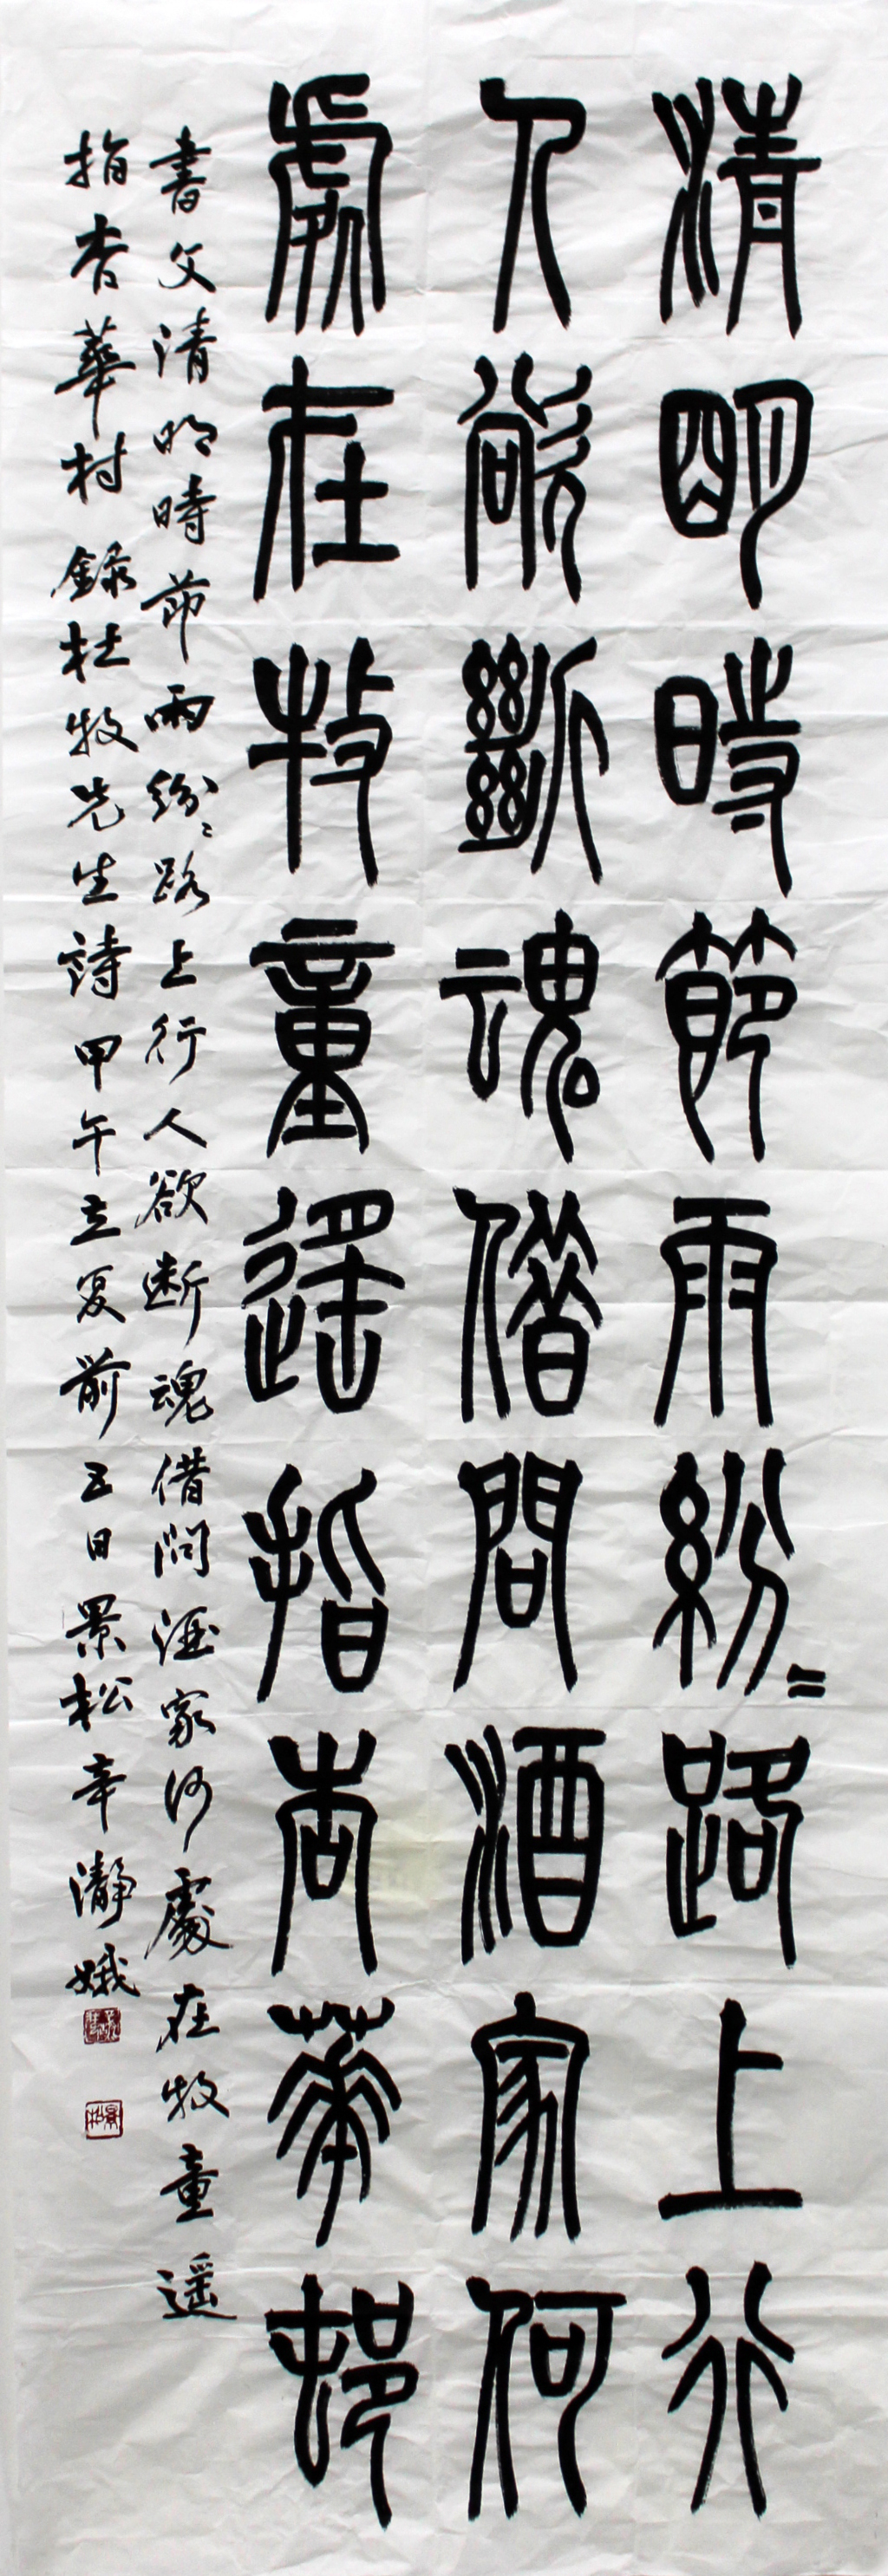 清明時節雨紛〻路上行
人欲斷魂借問酒家何
處在牧童遙指杏華邨
書文清明時節雨紛〻路上行人欲断魂借問酒家何處在牧童遥
指杏華村錄杜牧先生詩甲午立夏前五日景松辛瀞娥